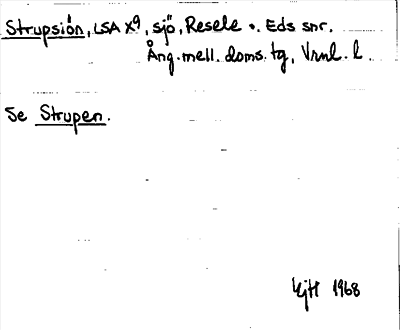 Strupsjön, LSA X9, sjö, Resele o. Eds snr.
Ång.mell. doms. tg, Vrnl. l.
Se Strupen.
1968